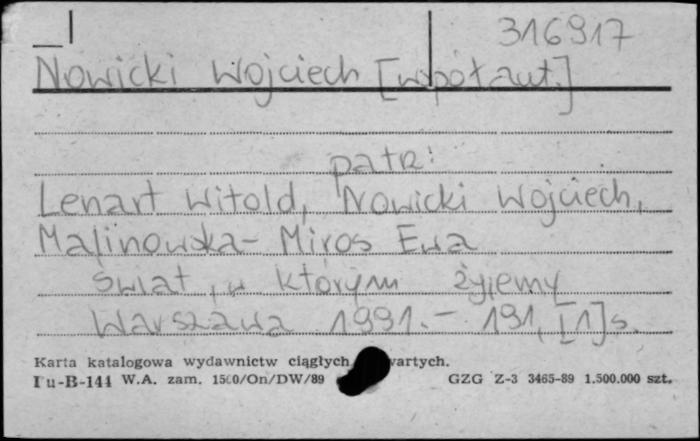 316917
Nowicki Wojciech [współaut.]
patrz:
Lenart Witold, Nowicki Wojciech,
Malinowska- Miros Ewa
Świat, w którym żyjemy
Warszawa 1991.- 191, [1] s.
Karta katalogowa wydawnictw ciągłych wartych.
Pu-B-144 W.A. zam. 1500/On/DW/89 GZG Z-3 3465-89 1.500.000 szt.